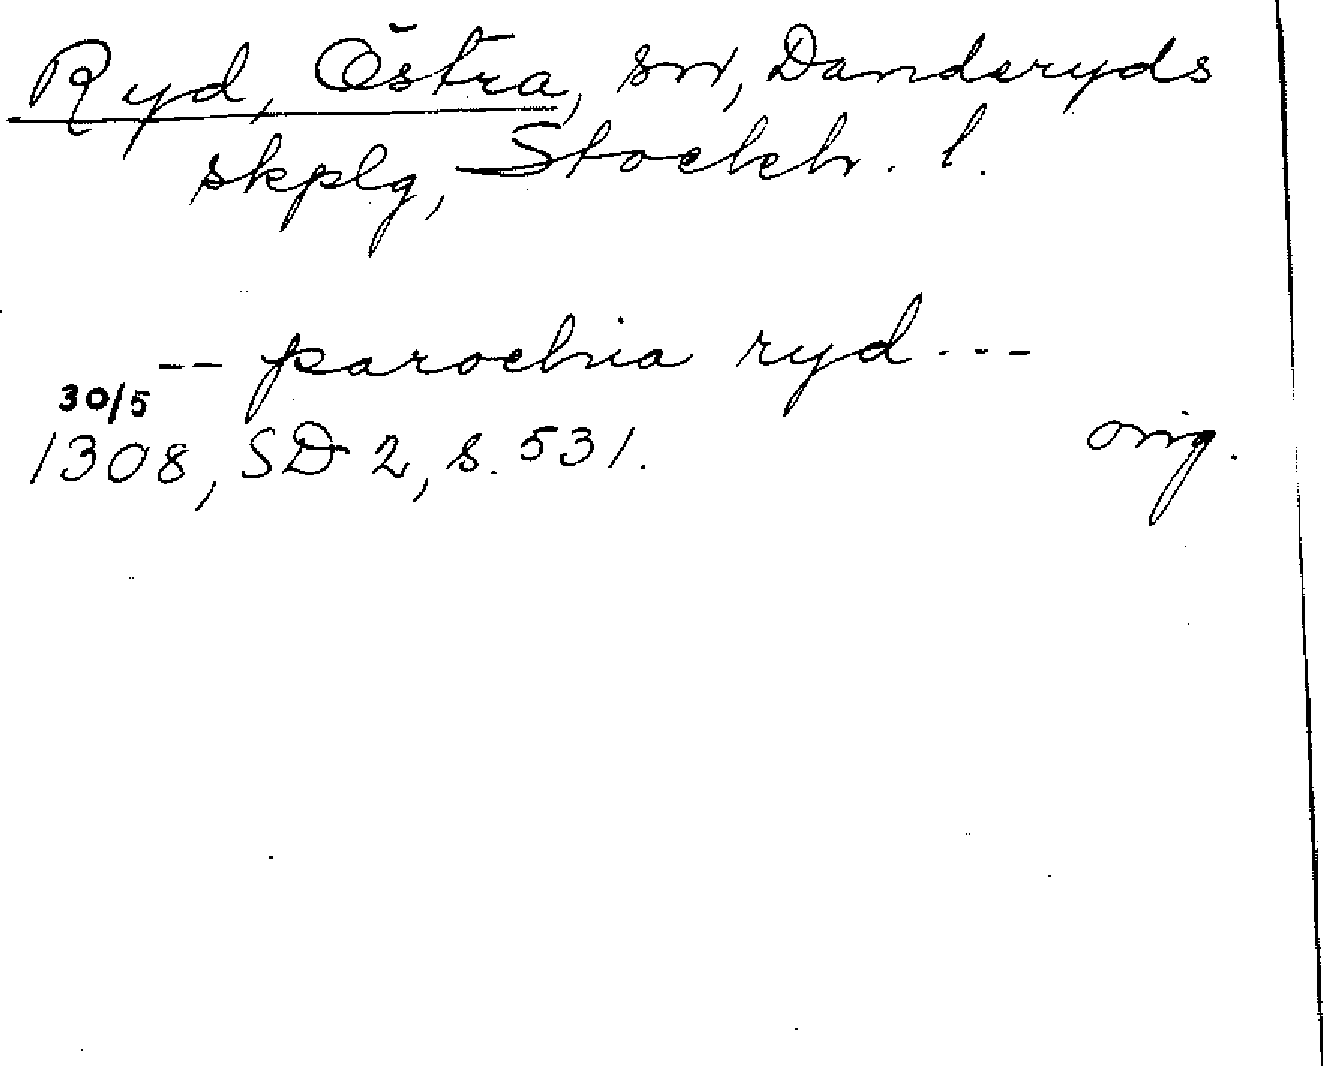 Ryd, Östra, sn, Danderyds
skplg, Stockh. l.
-- parochia ryd ---
30/5
1308, SD 2, s. 531. orig.